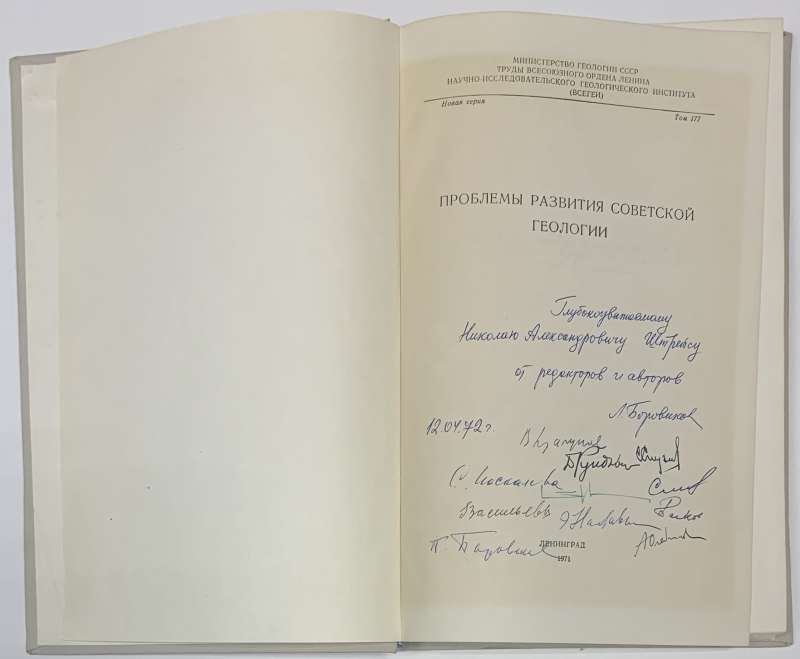 МИНИСТЕРСТВО ГЕОЛОГИИ СССР
ТРУДЫ ВСЕСОЮЗНОГО ОРДЕНА ЛЕНИНА
НАУЧНО-ИССЛЕДОВАТЕЛЬСКОГО ГЕОЛОГИЧЕСКОГО ИНСТИТУТА
(ВСЕГЕИ)
Новая серия Том 177
ПРОБЛЕМЫ РАЗВИТИЯ СОВЕТСКОЙ
ГЕОЛОГИИ
Глубокоуважаемому
Николаю Александровичу Штрейсу
от редакторов и авторов
Л. Боровиков
12.04.72 г.
Васильев
ЛЕНИНГРАД
1971